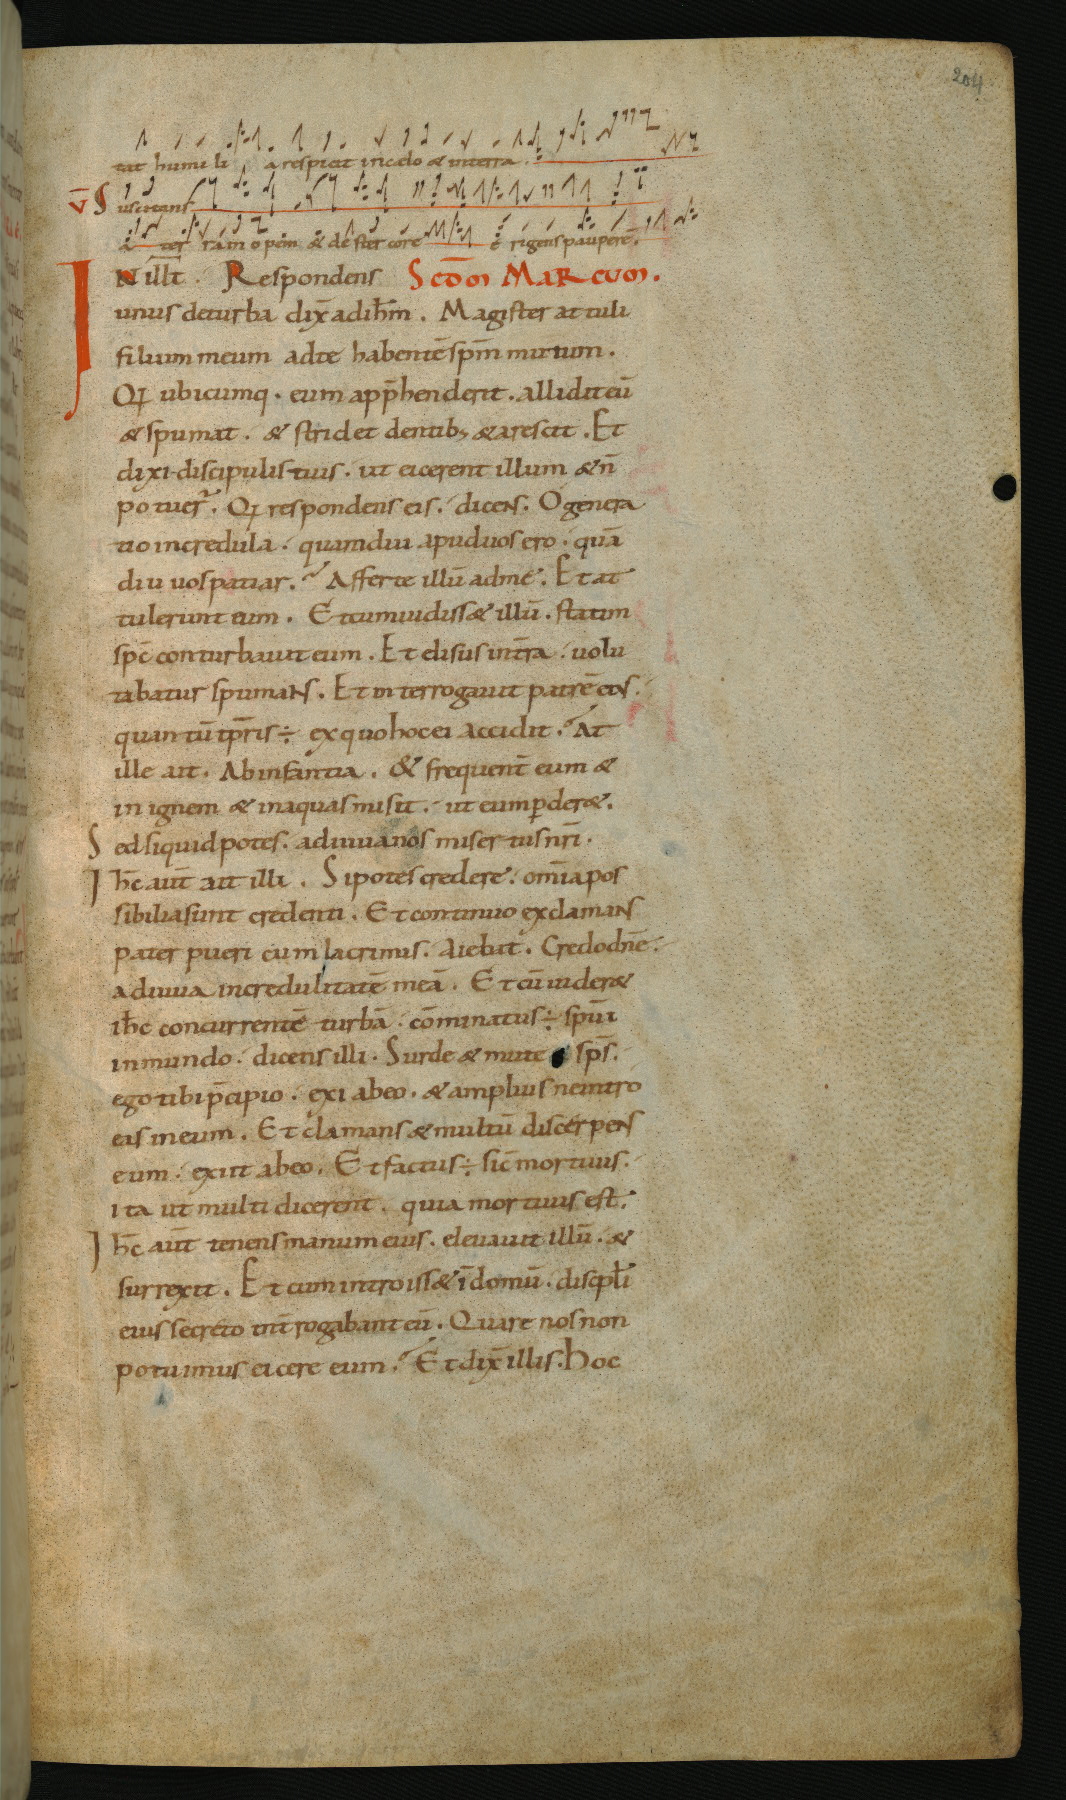 204
tat humili a respicit in celo & in terra.
V̄ Suscitans
a ter ram opem & de ster core e rigens pauperē.
IN illt̄. Respondens Scd̄m Marcum.
unus deturba dix̄ adih̄m. Magister attuli
filium meum adte habentē sp̄m mutum.
Qı ubicumq. eum app̄henderit. allidit eū
& spumat. & stridet dentib; & arescit. Et
dixi discipulis tuis. ut eicerent illum & n̄
potuer̄. Qı respondens eis. dicens. O genera
tio incredula. quamdiu apud uos ero. quā
diu uos patiar. Afferte illū admé. Et at
tulerunt eum. Et cum uidiss& illū. statim
sp̄c conturbauit eum. Et elisus in t̄ra. uolu
tabatur spumans. Et interrogauit patrē eius.
quantū tp̄ris ÷ ex quo hoc ei accidit. At
ille ait. Ab infantia. & frequent̄ eum &
in ignem & in aquas misit. ut eum p̄der&.
Sed siquid potes. adiuua nos misertus nr̄i.
Ih̄c aut̄ ait illi. Si potes credere. om̄ia pos
sibilia sunt credenti. Et continuo exclamans
pater pueri cum lacrimis. Aiebat. Credo dn̄e.
adiuua incredulitatē meā. Et cū uider&
ih̄c concurrentē turbā. cōminatus ÷ spūi
inmundo. dicens illi. Surde & mute sp̄s.
ego tibi p̄cipio. exi abeo. & amplius ne intro
eas ineum. Et clamans & multū discerpens
eum. exiit abeo. Et factus ÷ sic̄ mortuus.
Ita ut multi dicerent. quia mortuus est.
Ih̄c aut̄ tenens manum eius. eleuauit illū. &
surrexit. Et cum introiss& ī domū. discipl̄i
eius secreto int̄rogabant eū. Quare nos non
potuimus eicere eum. Et dix̄ illis. Hoc